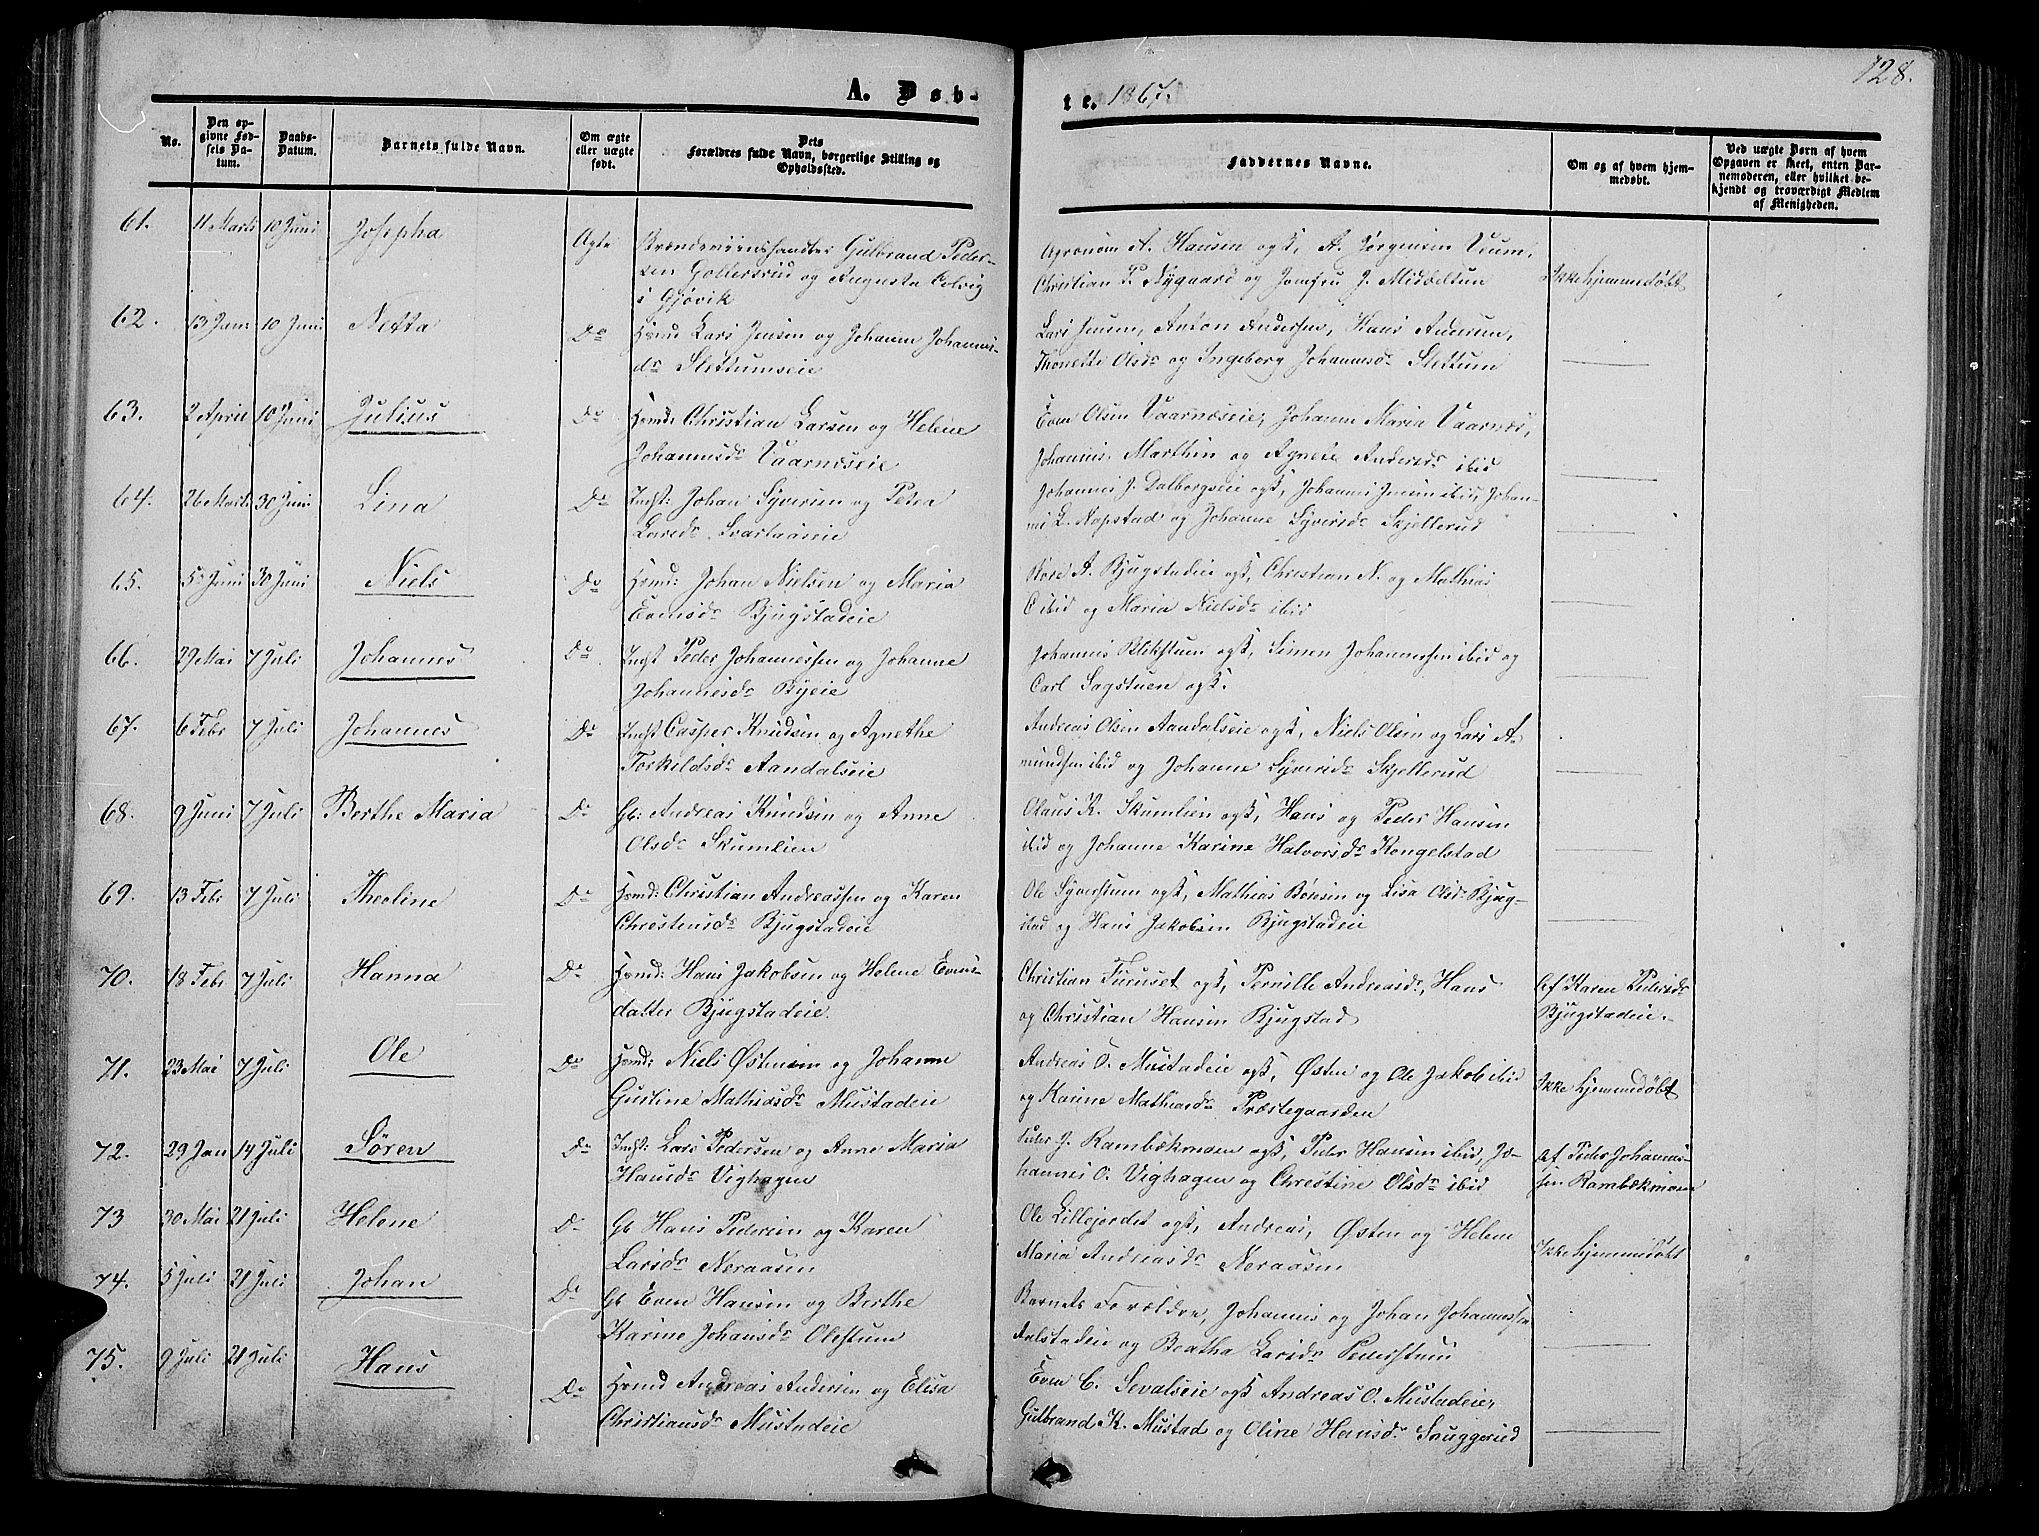 128.
A. Døb-
te. 1867.
No.
Den op-
givne Fød-
sels Da-
tum.
Daabs-
Datum.
Barnets fulde Navn.
Om ægte
eller uægte
født.
Dets
Forældres fulde Navn, borgerlige Stilling og
Opholdssted.
Faddernes Navne.
Om og af hvem hjem-
medøbt.
Ved uægte Børn af hvem
Opgaven er skeet, enten Bar-
nemoderen, eller hvilket be-
kjendt og troværdigt Medlem
af Menigheden.
61. 11 Marts 10 Juni Josepha Ægte Brændeviinshandler Gulbrand Peder-
sen Gollersrud og Augusta Colvig
i Gjøvik
Agronom A. Hansen ogs, A. Jørgensen Veum,
Christian P. Nygaard og Jomfru J. Middeltun
Ikke hjemmedøbt
62. 13 Jan 10 Juni Netta Do Hsmd Lars Jensen og Johanne Johannes-
dr Slettumseie
Lars Jensen, Anton Andersen, Hans Andersen,
Thonette Olsdr og Ingeborg Johannesdr Slettum
63. 2 April 10 Juni Julius Do Hsmd: Christian Larsen og Helene
Johannesdr Vaarnæseie
Even Olsen Vaarnæseie, Johanne Maria Vaarnæs,
Johannes Marthin og Agnete Andersdr ibid
64. 26 Marts 30 Juni Lina Do Indst: Johan Syversen og Petra
Larsdr Svartaaseie
Johannes J. Dalborgseie ogs, Johannes Jensen ibid, Johan-
nes L. Kopstad og Johanne Syversdr Skjellerud
65. 5 Juni 30 Juni Niels Do Hsmd: Johan Nielsen og Maria
Evensdr Bjugstadeie
Tore A. Bjugstadeie ogs, Christian N. og Mathias
C ibid og Maria Nielsdr ibid
66. 29 Mai 7 Juli Johannes Do Indst Peder Johannessen og Johanne
Johannesdr Byeie
Johannes Blikstuen ogs, Simen Johannessen ibid og
Carl Sagstuen ogs.
67. 6 Febr 7 Juli Johannes Do Indst Casper Knudsen og Agnethe
Torkildsdr Aandalseie
Andreas Olsen Aandalseie ogs, Niels Olsen og Lars A-
mundsen ibid og Johanne Syversdr Skjellerud
68. 9 Juni 7 Juli Berthe Maria Do Gb: Andreas Knudsen og Anne
Olsdr Skumlien
Olaus K. Skumlien ogs, Hans og Peder Hansen
ibid og Johanne Karine Halvorsdr Kongelstad
69. 13 Febr 7 Juli Theoline Do Hsmd: Christian Andreassen og Karen
Christensdr Bjugstadeie
Ole Syverstuen ogs, Mathias Bønsen og Lisa Olsdr Bjug-
stad og Hans Jakobsen Bjugstadeie
70. 18 Febr 7 Juli Hanna Do Hsmd: Hans Jakobsen og Helene Evens-
datter Bjugstadeie.
Christian Furuset ogs, Pernille Andreasdr, Hans
og Christian Hansen Bjugstad
Af Karen Pedersdr
Bjugstadeie.
71. 23 Mai 7 Juli Ole Do Hsmd: Niels Østensen og Johanne
Gustine Mathiasdr Mustadeie
Andreas O. Mustadeie ogs, Østen og Ole Jakob ibid
og Karine Mathiasdr Præstegaarden
Ikke hjemmedøbt
72. 29 Jan 14 Juli Søren Do Indst: Lars Pedersen og Anne Maria
Hansdr Vighagen
Peder J. Rambækmoen ogs, Peder Hansen ibid, Jo-
hannes O. Vighagen og Christine Olsdr ibid
Af Peder Johannes-
sen Rambækmoen
73 30 Mai 21 Juli Helene Do Gb Hans Pedersen og Karen
Larsdr Neraasen
Ole Lillejordet ogs, Andreas, Østen og Helene
Maria Andreasdr Neraasen
Ikke hjemmedøbt
74. 5 Juli 21 Juli Johan Do Gb Even Hansen og Berthe
Karine Johansdr Olestuen
Barnets Forældre, Johannes og Johan Johannessen
Aalstadeie og Beatha Larsdr Pederstuen
75. 9 Juli 21 Juli Hans Do Hsmd Andreas Andersen og Elisa
Christiansdr Mustadeie
Even C. Sevalseie ogs Andreas O. Mustadeie,
Gulbrand K. Mustad og Oline Hansdr Snuggerud